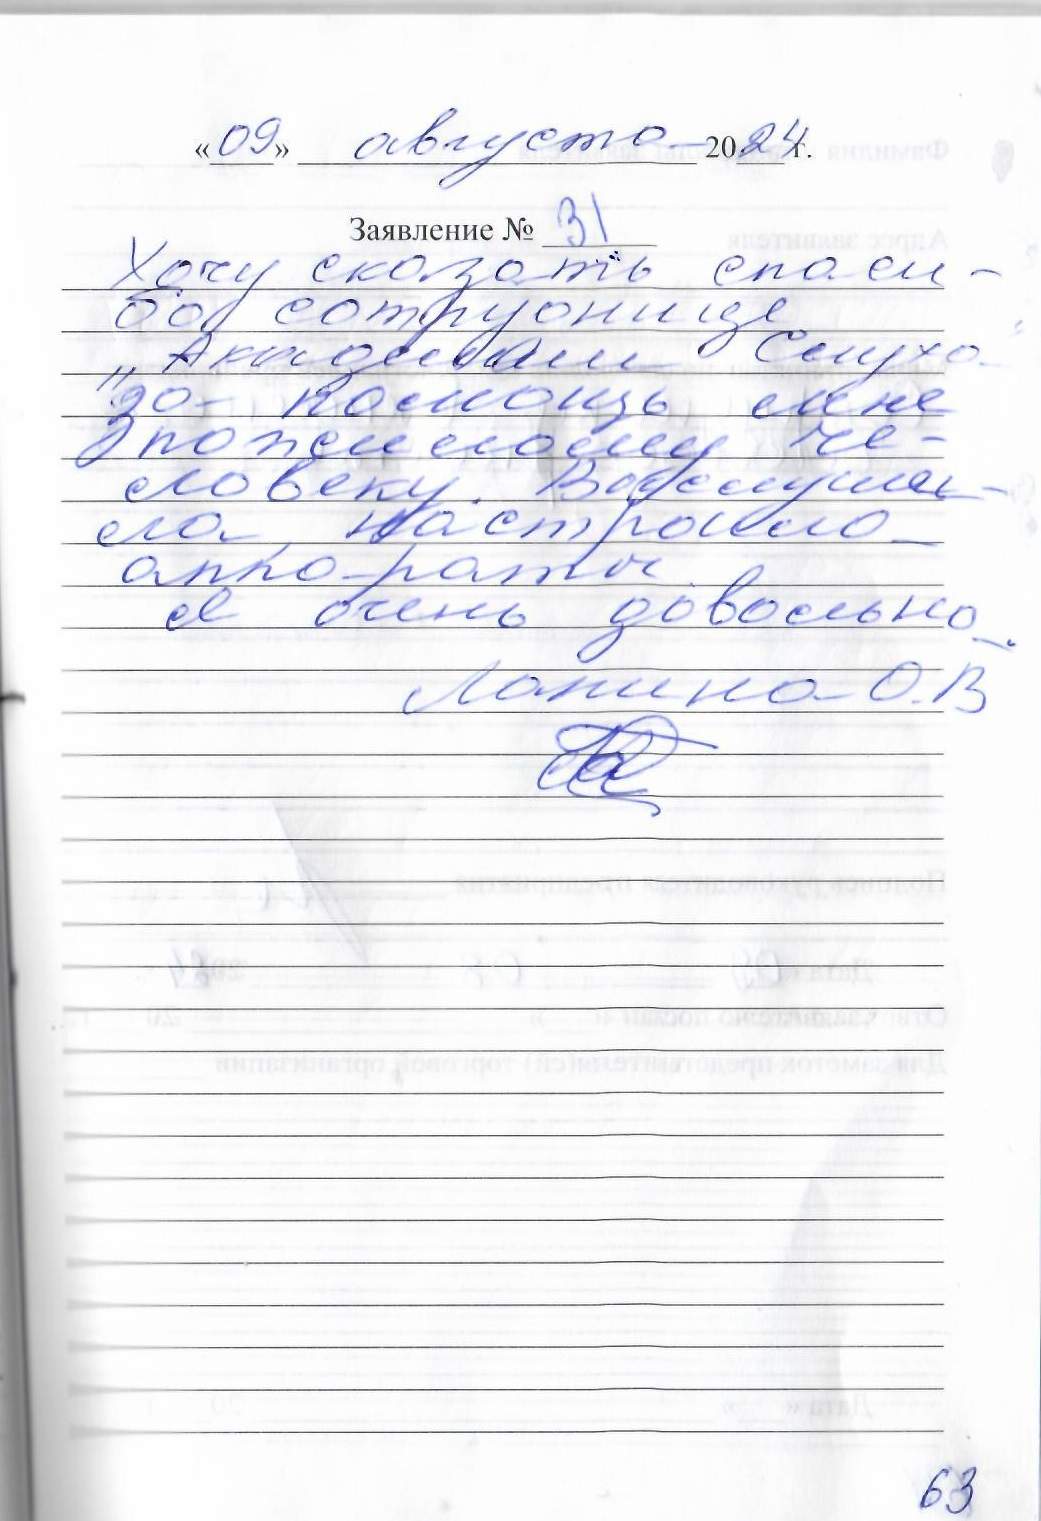 «09» августа 2024 г.
Заявление № 31
Хочу сказать спаси-
бо сотруднице
"Академии Слуха
за помощь мне
пожилому че-
ловеку. Выслуша-
ла, настроила
аппараты.
Я очень довольна.
Ланина О.В
63